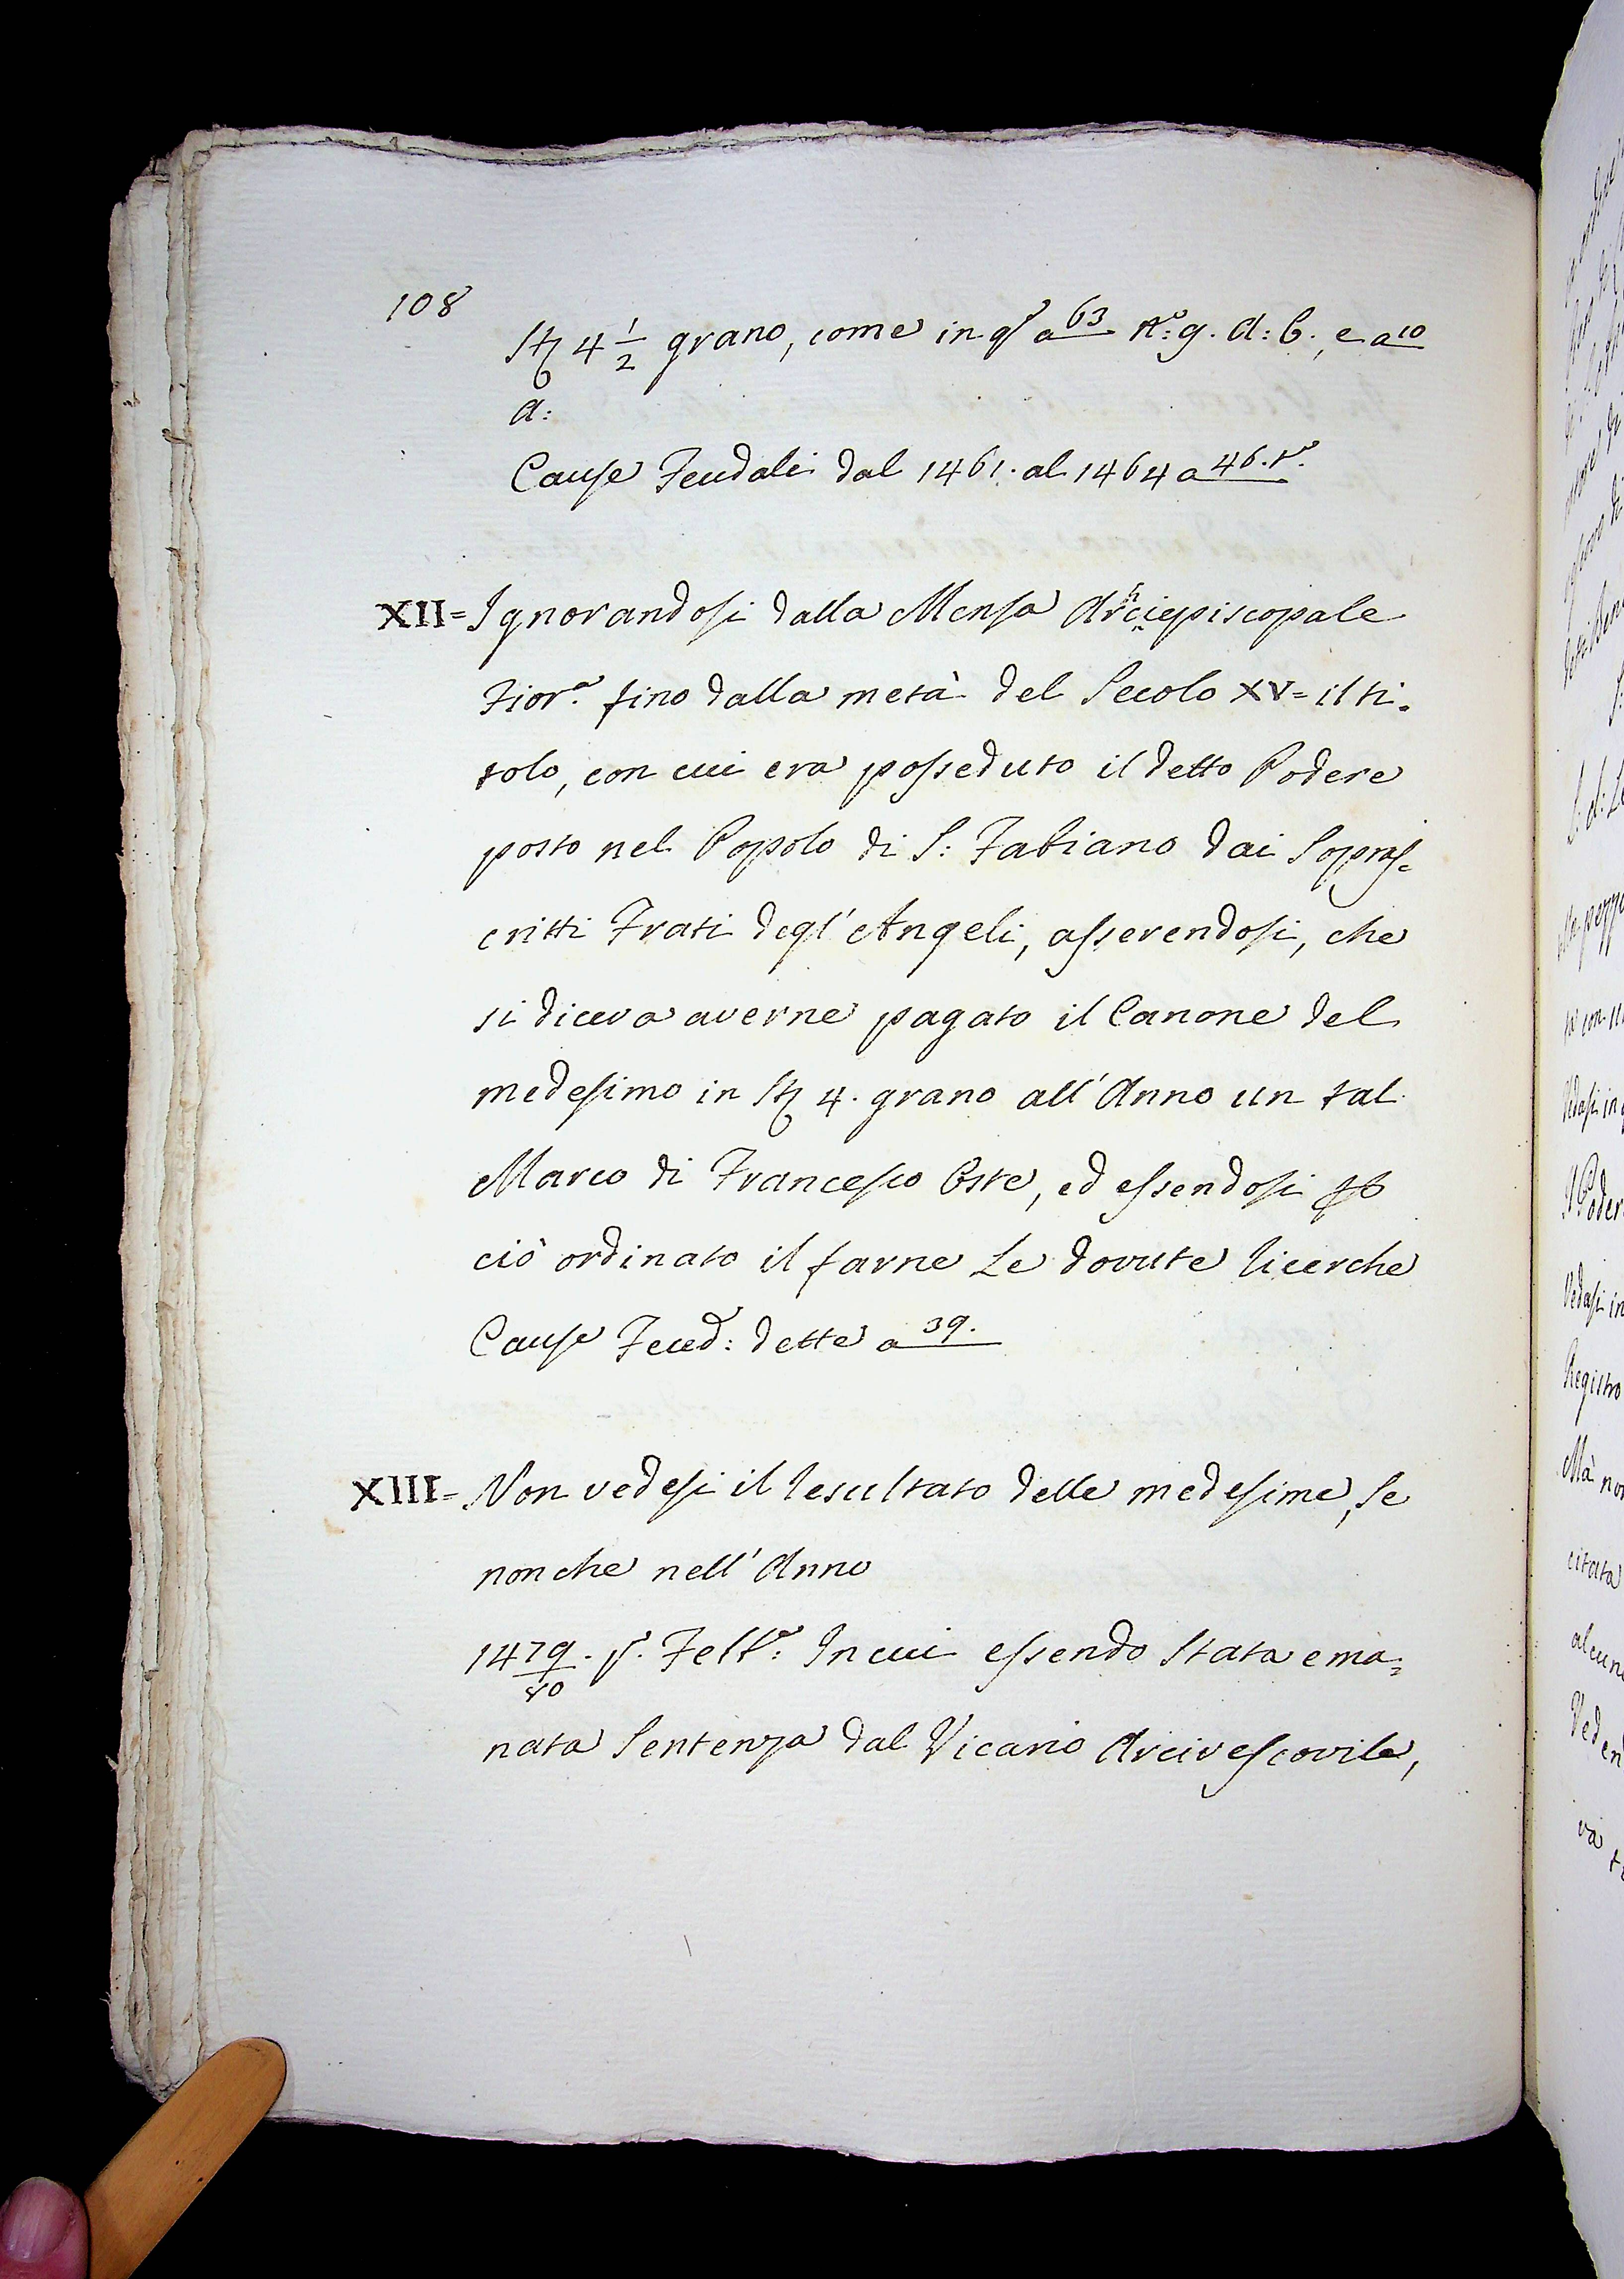 108
Sta 4 1/2 grano, come in qo a 63 No: 9. A: 6., e a 10
A:
Cause Feudali dal 1461. al 1464 a 46. to.
XII = Ignorandosi dalla Mensa Archiepiscopale
Fiora. fino dalla metà del Secolo XV = il ti-
tolo, con cui era posseduto il detto Podere
posto nel Popolo di S: Fabiano dai Sopras-
critti Frati degl' Angeli, asserendosi, che
si diceva averne pagato il Canone del
medesimo in Sta 4. grano all' Anno un tal
Marco di Francesco Oste, ed essendosi per
ciò ordinato il farne Le dovute Ricerche
Cause Feud: dette a 39.
XIII = Non vedesi il Resultato delle medesime, Se
non che nell' Anno
1479/80. po. Febbo: In cui essendo Stata ema=
nata Sentenza dal Vicario Arcivescovile,